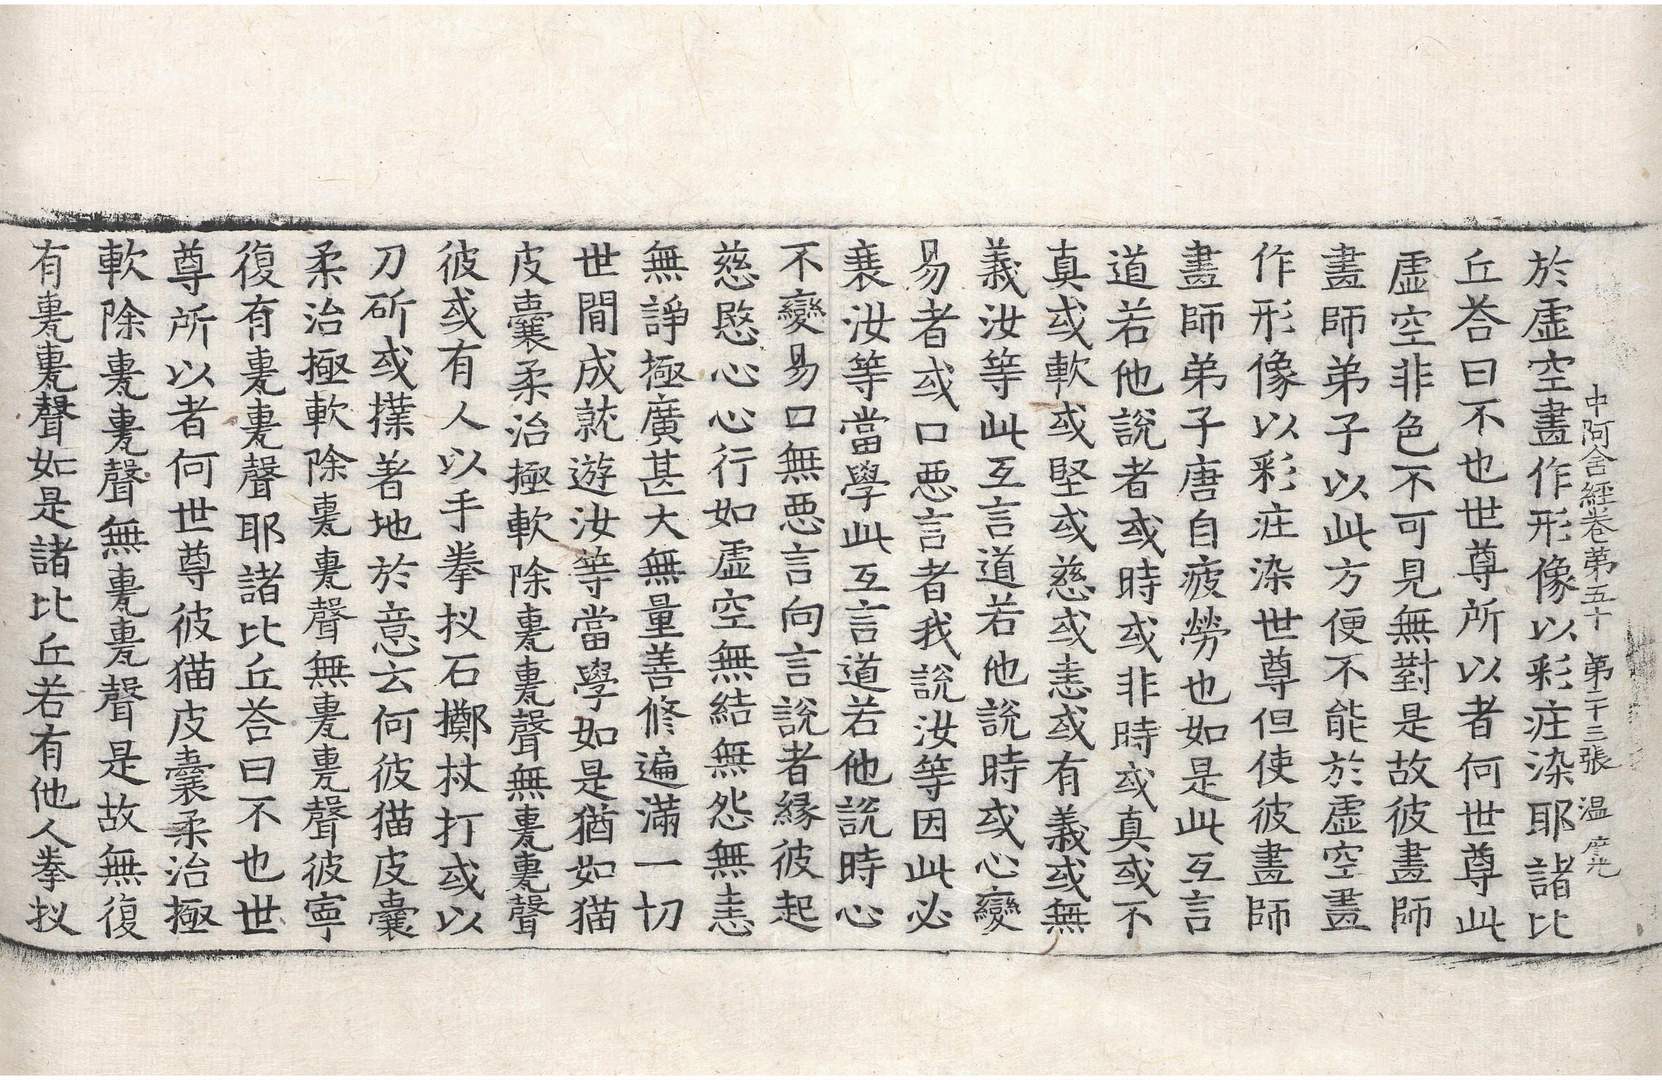 中阿含經卷第五十 第二十三張 温
於虛空畫作形像以彩莊染耶諸比
丘荅曰不也世尊所以者何世尊此
虛空非色不可見無對是故彼畫師
畫師弟子以此方便不能於虛空畫
作形像以彩莊染世尊但使彼畫師
畫師弟子唐自疲勞也如是此互言
道若他說者或時或非時或真或不
真或軟或堅或慈或恚或有義或無
義汝等此互言道若他說時或心變
易者或口悪言者我說汝等因此必
衰汝等當學此互言道若他說時心
不變易口無悪言向言說者緣彼起
慈愍心心行如虛空無結無怨無恚
無諍極廣甚大無量善修遍滿一切
世間成就遊汝等當學如是猶如猫
皮囊柔治極軟除聲無聲
彼或有人以手拳扠石擲杖打或以
刀斫或撲著地於意云何彼猫皮囊
柔治極軟除聲無聲彼寧
復有聲耶諸比丘荅曰不也世
尊所以者何世尊彼猫皮囊柔治極
軟除聲無聲是故無復
有聲如是諸比丘若有他人拳扠